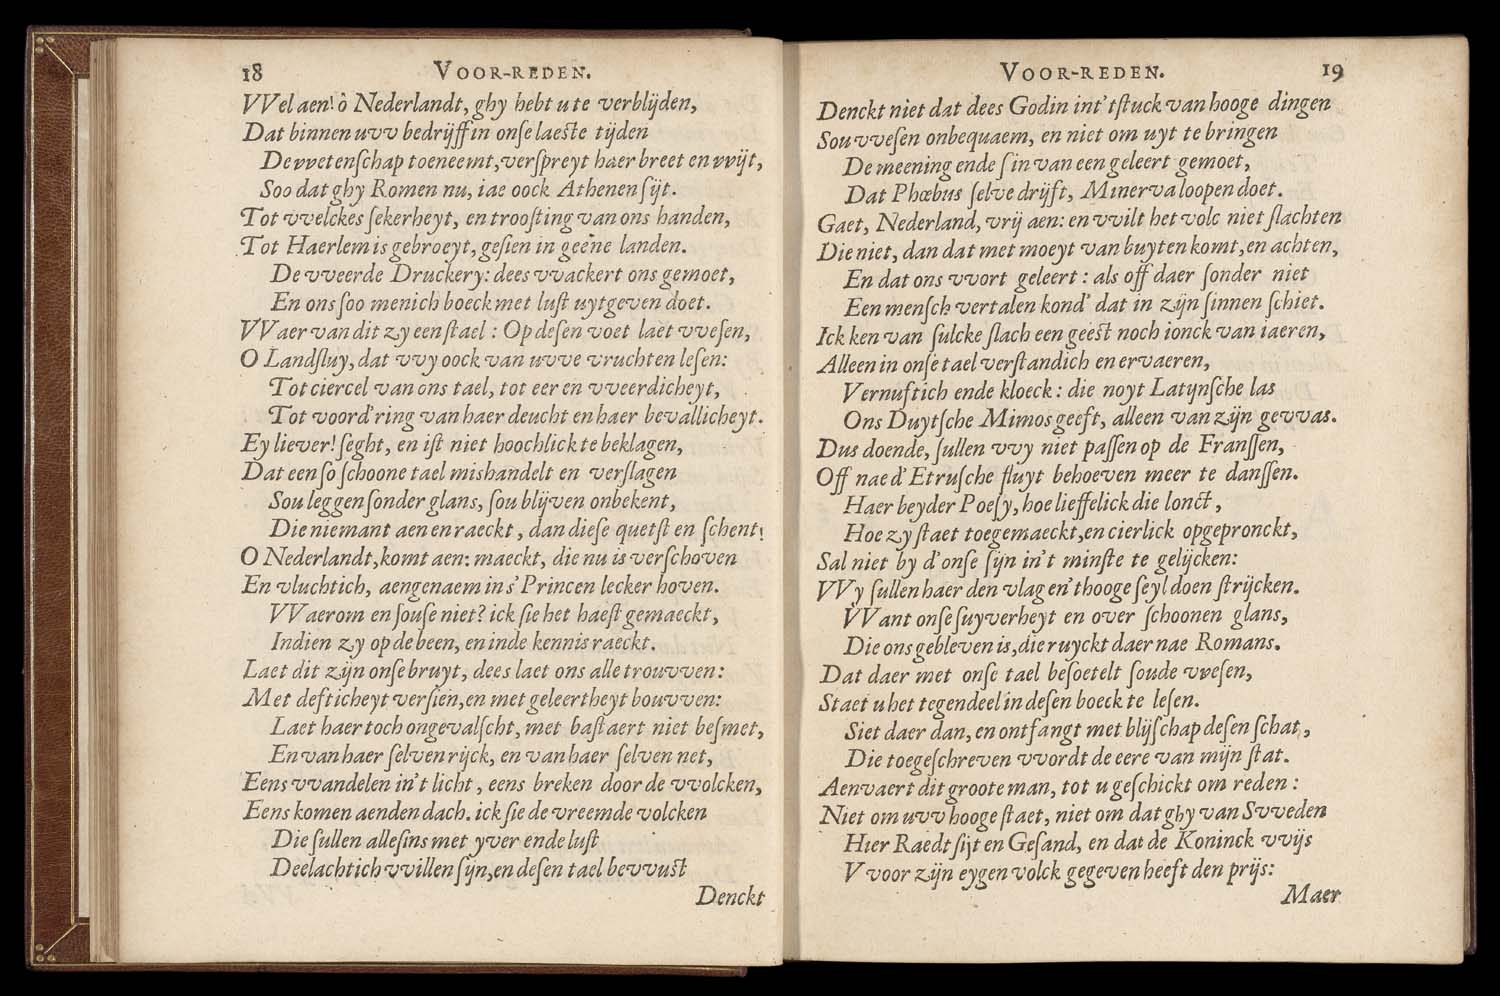 18 VOOR-REDEN.
VVel aen! ô Nederlandt, ghy hebt u te verblijden,
Dat binnen uvv bedrijff in onſe laeſte tijden
De vvetenſchap toeneemt, verſpreyt haer breet en vvijt,
Soo dat ghy Romen nu, iae oock Athenen ſijt.
Tot vvelckes ſekerheyt, en trooſting van ons handen,
Tot Haerlem is gebroeyt, geſien in geene landen.
De vveerde Druckery: dees vvackert ons gemoet,
En ons ſoo menich boeck met luſt uytgeven doet.
VVaer van dit zy een ſtael: Op deſen voet laet vveſen,
O Landſluy, dat vvy oock van uvve vruchten leſen:
Tot ciercel van ons tael, tot eer en vveerdicheyt,
Tot voord'ring van haer deucht en haer bevallicheyt.
Ey liever! ſeght, en iſt niet hoochlick te beklagen,
Dat een ſo ſchoone tael mishandelt en verſlagen
Sou leggen ſonder glans, ſou blijven onbekent,
Die niemant aen en raeckt, dan dieſe quetſt en ſchent!
O Nederlandt, komt aen: maeckt, die nu is verſchoven
En vluchtich, aengenaem in s' Princen lecker hoven.
VVaerom en ſouſe niet? ick ſie het haeſt gemaeckt,
Indien zy op de been, en in de kennis raeckt.
Laet dit zijn onſe bruyt, dees laet ons alle trouvven:
Met defticheyt verſien, en met geleertheyt bouvven:
Laet haer toch ongevalſcht, met baſtaert niet beſmet,
En van haer ſelven rijck, en van haer ſelven net,
Eens vvandelen in't licht, eens breken door de vvolcken,
Eens komen aen den dach. ick ſie de vreemde volcken
Die ſullen alleſins met yver ende luſt
Deelachtich vvillen ſijn, en deſen tael bevvuſt
Denckt
VOOR-REDEN. 19
Denckt niet dat dees Godin int' tſtuck van hooge dingen
Sou vveſen onbequaem, en niet om uyt te bringen
De meening ende ſin van een geleert gemoet,
Dat Phœbus ſelve drijft, Minerva loopen doet.
Gaet, Nederland, vrij aen: en vvilt het volc niet ſlachten
Die niet, dan dat met moeyt van buyten komt, en achten,
En dat ons vvort geleert: als off daer ſonder niet
Een menſch vertalen kond' dat in zijn ſinnen ſchiet.
Ick ken van ſulcke ſlach een geeſt noch ionck van iaeren,
Alleen in onſe tael verſtandich en ervaeren,
Vernuftich ende kloeck: die noyt Latijnſche las
Ons Duytſche Mimos geeft, alleen van zijn gevvas.
Dus doende, ſullen vvy niet paſſen op de Franſſen,
Off nae d' Etruſche fluyt behoeven meer te danſſen.
Haer beyder Poeſy, hoe lieffelick die lonckt,
Hoe zy ſtaet toegemaeckt, en cierlick opgepronckt,
Sal niet by d'onſe ſijn in't minſte te gelijcken:
VVy ſullen haer den vlag en' thooge ſeyl doen ſtrijcken.
VVant onſe ſuyverheyt en over ſchoonen glans,
Die ons gebleven is, die ruyckt daer nae Romans.
Dat daer met onſe tael beſoetelt ſoude vveſen,
Staet u het tegendeel in deſen boeck te leſen.
Siet daer dan, en ontfangt met blijſchap deſen ſchat,
Die toegeſchreven vvordt de eere van mijn ſtat.
Aenvaert dit groote man, tot u geſchickt om reden:
Niet om uvv hooge ſtaet, niet om dat ghy van Svveden
Hier Raedt ſijt en Geſand, en dat de Koninck vvijs
V voor zijn eygen volck gegeven heeft den prijs:
Maer